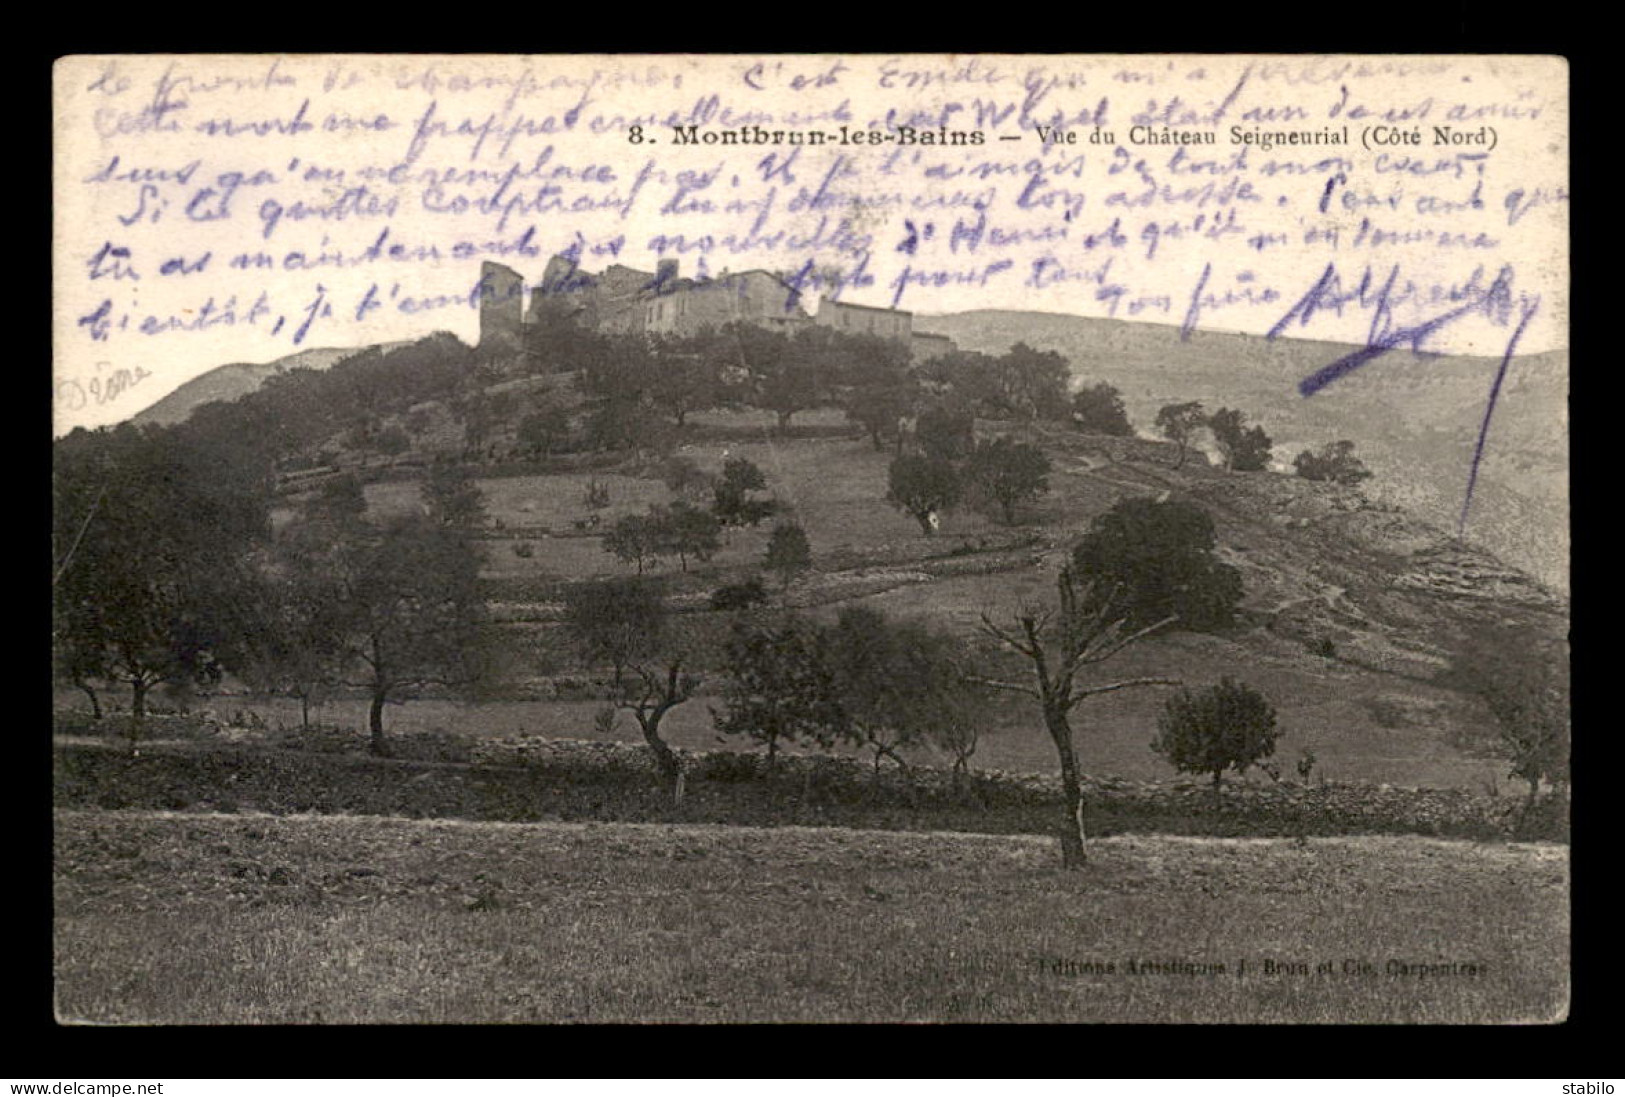 le front de champagne. C'est Emile qui m'a prévenu.
Cette mort me frappe cruellement, était un de ces amis
8. Montbrun-les-Bains — Vue du Château Seigneurial (Côté Nord)
qu'on ne remplace pas. Et je l'aimais de tout mon cœur.
Si tu quittes Comptrain tu m'y donneras ton adresse. Pensant que
tu as maintenant des nouvelles d'Henri et qu'il m'en donnera
bientôt, je t'embrasse bien fort pour tous
Ton frère Alfred
Drôme
Editions Artistiques J. Brun et Cie, Carpentras
delcampe.net
stabilo